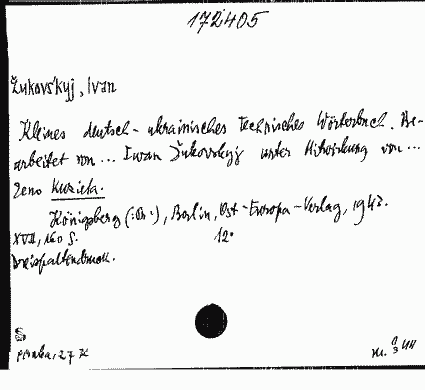 172405
Žukovśkyj, Ivan
Kleines deutsch-ukrainisches technisches Wörterbuch. Be-
arbeitet von ... Iwan Žukovśkyj unter Mitwirkung von ...
Zeno Kuziela.
Königsberg (:Pr:), Berlin, Ost-Europa-Verlag, 1943.
XVII, 160 S. 12°
Dreispaltendruck.